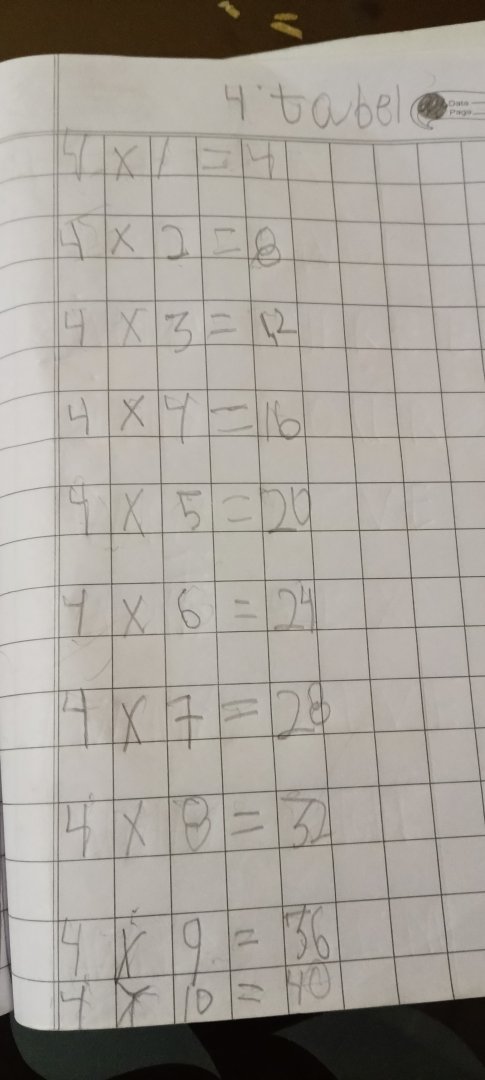 4 tabel
Date
Page
4 x 1 = 4
4 x 2 = 8
4 x 3 = 12
4 x 4 = 16
4 x 5 = 20
4 x 6 = 24
4 x 7 = 28
4 x 8 = 32
4 x 9 = 36
4 x 10 = 40